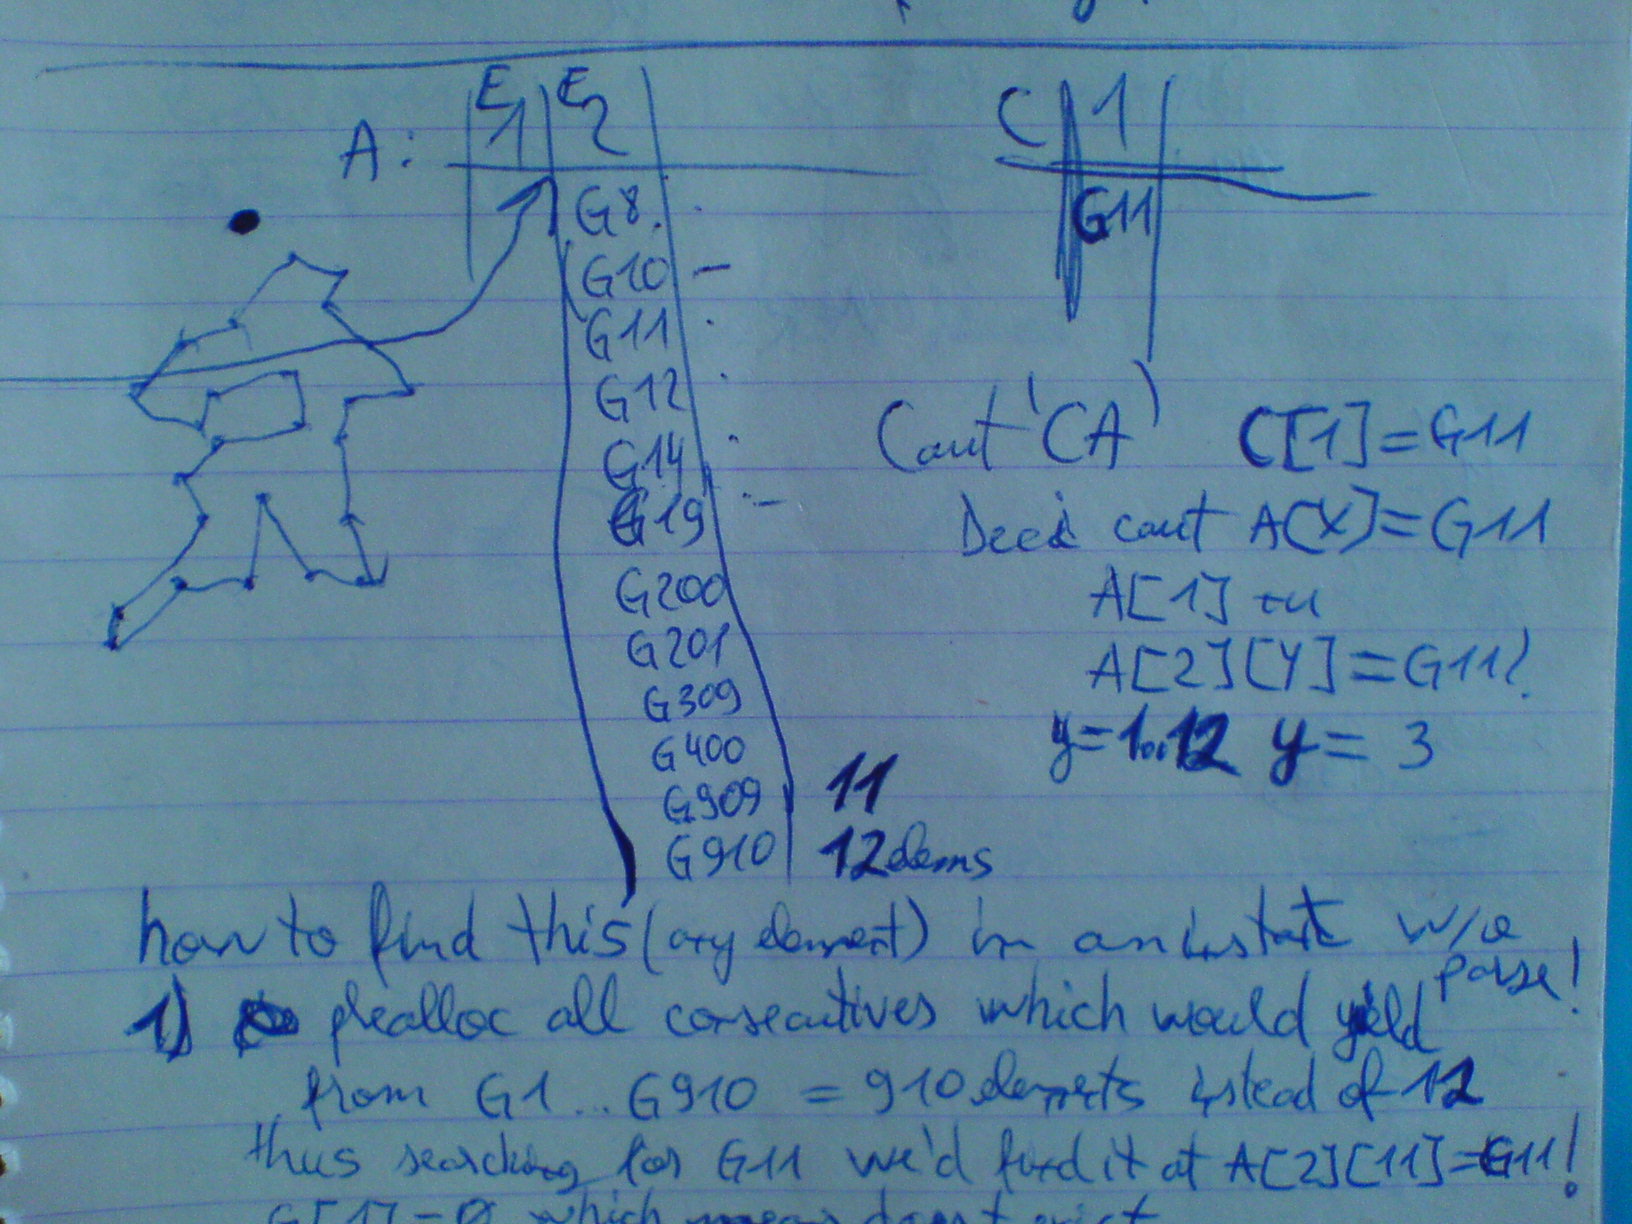 E E
A: 1 2
C 1
G8.
G11
G10 –
G11
G12
G14
G19 –
G200
G201
G309
G400
G909 11
G910 12 elems
Caut 'CA' C[1]=G11
Deci caut A[X]=G11
A[1] nu
A[2][Y]=G11?
y=1..12 y = 3
how to find this (any element) in an instant w/o
parse!
1) prealloc all consecutives which would yield
from G1...G910 = 910 elements instead of 12
thus searching for G11 we'd find it at A[2][11]=G11!
G[1]=0 which means doesn't exist